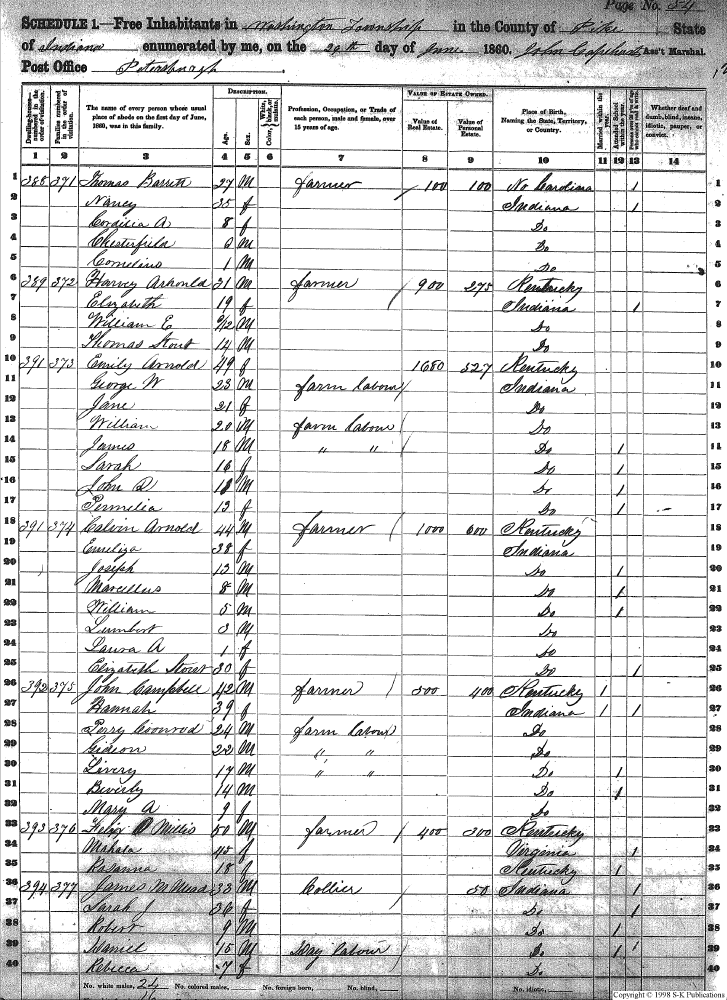 Page No. 54
SCHEDULE 1.—Free Inhabitants in Washington Township in the County of Pike State
of Indiana enumerated by me, on the 20th day of June 1860. John Capehart Ass't Marshal.
Post Office Petersburgh
Dwelling-houses numbered in the order of visitation. Families numbered in the order of visitation. The name of every person whose usual place of abode on the first day of June, 1860, was in this family. DESCRIPTION. Age. Sex. Color, White, black, or mulatto. Profession, Occupation, or Trade of each person, male and female, over 15 years of age. VALUE OF ESTATE OWNED. Value of Real Estate. Value of Personal Estate. Place of Birth, Naming the State, Territory, or Country. Married within the year. Attended School within the year. Whether deaf and dumb, blind, insane, idiotic, pauper, or convict.
1 2 3 4 5 6 7 8 9 10 11 12 13 14
1 388 371 Thomas Barrett 27 M farmer / 100 100 No Cardina 1 1
2 Nancy 35 f Indiana 1 2
3 Cordilia A 8 f Do 3
4 Chesterfield 6 M Do 4
5 Cornelius 1 M Do 5
6 389 372 Harvey Arhonld 31 M farmer 900 275 Kentucky 6
7 Elizabeth 19 f Indiana 1 7
8 William E 9/12 M Do 8
9 Thomas Stout 14 M Do 9
10 391 373 Emily Arnold 49 f 1680 527 Kentucky 10
11 George W 23 M farm labour Indiana 11
12 Jane 21 f Do 12
13 William 20 M farm labour Do 13
14 James 18 M " " Do 1 14
15 Sarah 16 f Do 1 15
16 John D M Do 1 16
17 Permelia 13 f Do 1 17
18 391 374 Calvin Arnold 44 M farmer 1000 600 Kentucky 18
19 Emeliza 38 f Indiana 19
20 Joseph 13 M Do 1 20
21 Marcellus 8 M Do 1 21
22 William 5 M Do 1 22
23 Lumbert 3 M Do 23
24 Laura A 1 f Do 24
25 Elizabeth Stout 30 f Do 1 25
26 392 375 John Campbell 42 M farmer 500 400 Kentucky 1 26
27 Hannah 39 f Indiana 1 1 27
28 Perry Coonrod 24 M farm labour Do 28
29 Gideon 22 M " " Do 29
30 Livery 17 M " " Do 1 30
31 Beverly 14 M Do 1 31
32 Mary A 9 f Do 32
33 393 376 Felix Millis 50 M farmer / 400 300 Kentucky 33
34 Mahala 45 f Virginia 1 34
35 Rosanna 18 f Kentucky 1 35
36 394 377 James M Mead 33 M Collier 50 Indiana 1 36
37 Sarah J 36 f Do 1 37
38 Robert 9 M Do 1 38
39 Daniel 15 M Day labour Do 1 1 39
40 Rebecca 7 f Do 40
No. white males, 24 No. colored males, No. foreign born, No. blind, No. idiotic,
Copyright © 1998 S-K Publications